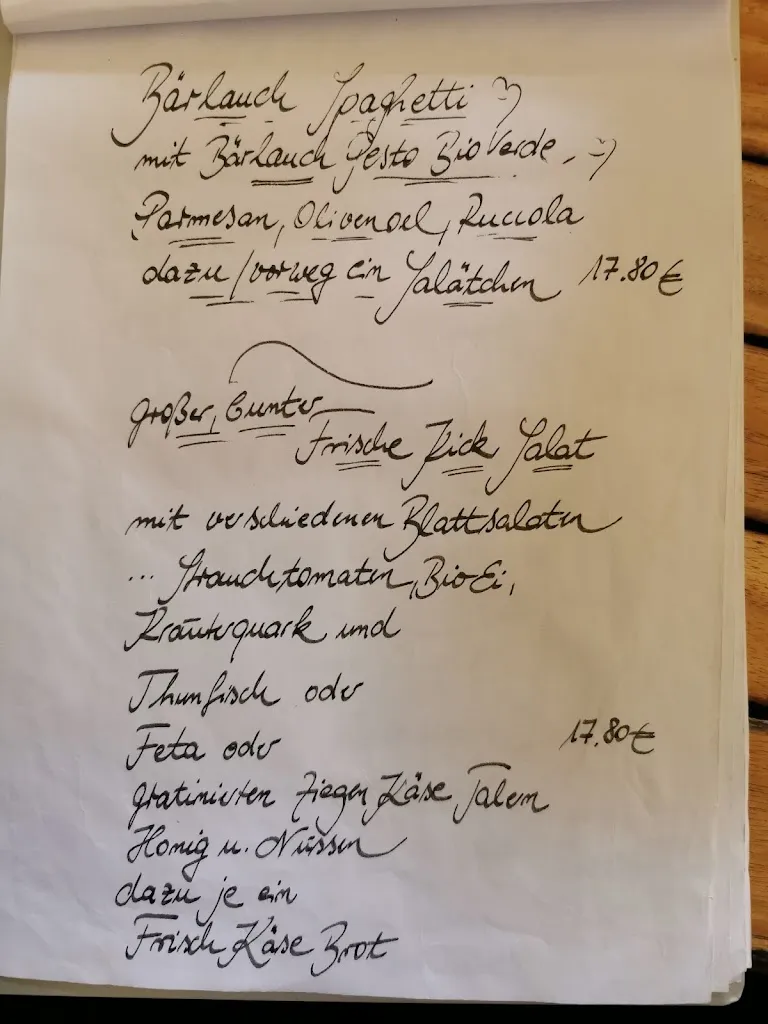 Bärlauch Spaghetti :)
mit Bärlauch Pesto Bio Verde, :)
Parmesan, Olivenoel, Ruccola
dazu/vorweg ein Salätchen 17.80€
großer, bunter
Frische Kick Salat
mit verschiedenen Blattsalaten
... Strauchtomaten, Bio Ei,
Kräuterquark und
Thunfisch oder
Feta oder 17.80€
gratinierten Ziegen Käse Talern
Honig u. Nüssen
dazu je ein
Frisch Käse Brot